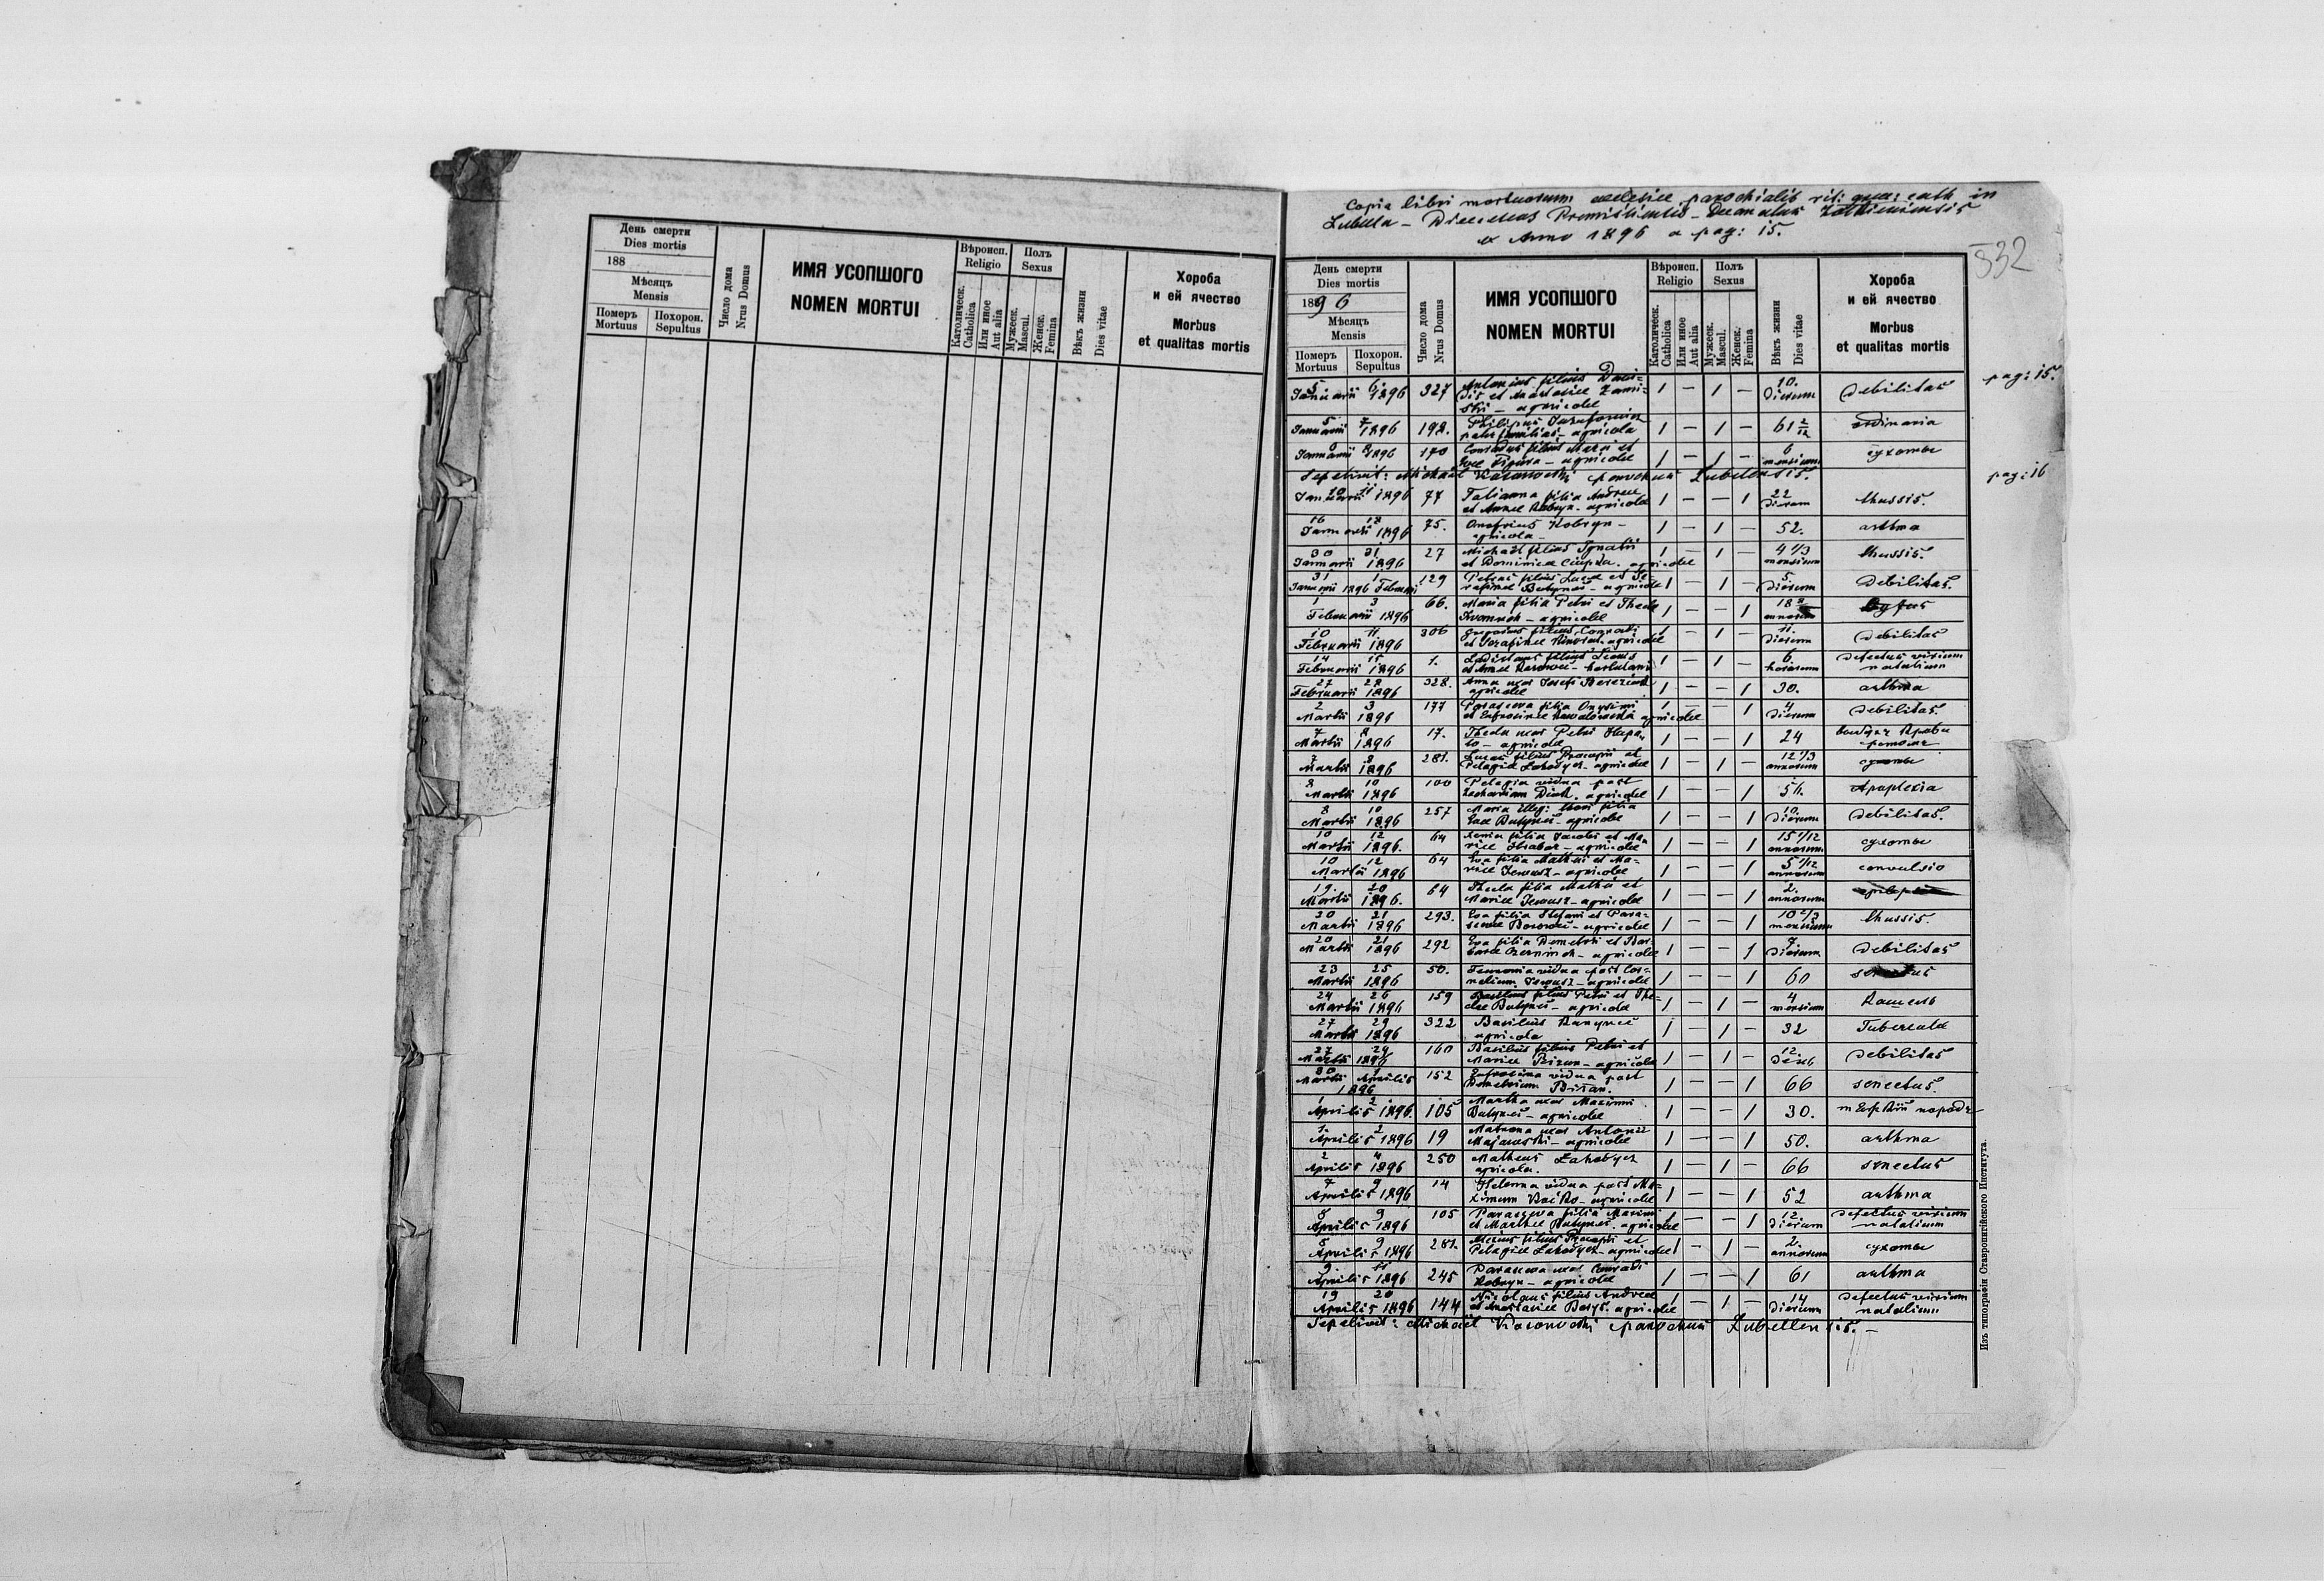 День смерти
Dies mortis
188
Мѣсяцъ
Mensis
Померъ
Mortuus
Похорон.
Sepultus
Число дома
Nrus Domus
ИМЯ УСОПШОГО
NOMEN MORTUI
Вѣроисп.
Religio
Католическ.
Catholica
Или иное
Aut alia
Полъ
Sexus
Мужеск.
Mascul.
Женск.
Femina
Вѣкъ жизни
Dies vitae
Хороба
и ей ячество
Morbus
et qualitas mortis
Copia libri mortuorum ecclesiae parochialis rit: graec: cath in
Lubella - Dioecesis Premisliensis - Decanatus
ex Anno 1896 a pag: 15.
532
День смерти
Dies mortis
1896
Мѣсяцъ
Mensis
Померъ
Mortuus
Похорон.
Sepultus
Число дома
Nrus Domus
ИМЯ УСОПШОГО
NOMEN MORTUI
Вѣроисп.
Religio
Католическ.
Catholica
Или иное
Aut alia
Полъ
Sexus
Мужеск.
Mascul.
Женск.
Femina
Вѣкъ жизни
Dies vitae
Хороба
и ей ячество
Morbus
et qualitas mortis
pag: 15.
5 Januarii 6 1896 327 Antonius filius et Anastasiae - agricolae 1 - 1 - 10. Dierum Debilitas
5 Januarii 7 1896 192. Philipus - agricola 1 - 1 - 61 2/12 ordinaria
Januarii 1896 170 Conradus filius et Evae - agricolae 1 - 1 - 6 mensium сухоты
Sepelivit: Michael parochus Lubellensis.
pag: 16
10 Januarii 11 1896 77 Tatianna filia Andreae et Annae Kobryn - agricolae 1 - - 1 22 Dierum thussis.
16 Januarii 18 1896 75. Onofrius Kobryn - agricola - 1 - 1 - 52. asthma
30 Januarii 31 1896 27 Michaël filius Ignatii et Dominicae - agricolae 1 - 1 - 4 1/3 mensium thussis.
31 Januarii 1896 1 Februarii 129 Petrus filius Lucae et - agricolae 1 - 1 - 5 Dierum Debilitas.
1 Februarii 3 1896 66. Maria filia Petri et Theclae - agricolae 1 - - 1 18 annorum
10 Februarii 11. 1896 306 filius Conradi et - agricolae 1 - 1 - 11. Dierum Debilitas
14 Februarii 15 1896 1. filius et Annae 1 - 1 - 6. horarum Defectus virium natalium
27 Februarii 28 1896 328. Anna uxor Josefi agricolae 1 - - 1 30. asthma
2 Martii 3 1896 177 Parasceva filia Onysimi et Eufrosinae agricolae 1 - - 1 4 Dierum Debilitas.
7 Martii 8 1896 17. Thecla uxor Petri - agricolae 1 - - 1 24
7 Martii 8 1896 281. Lucas filius Procopii et Pelagiae Zahobych - agricolae 1 - 1 - 12 1/3 annorum сухоты
8 Martii 10 1896 100 Pelagia vidua post Zachariam - agricolae 1 - - 1 51. Apoplexia
8 Martii 10 1896 257 Maria Illeg: thori filia Evae Butynec - agricolae 1 - - 1 10. Dierum Debilitas.
10 Martii 12 1896. 64 Xenia filia Jacobi et Mariae - agricolae 1 - - 1 15 1/12 annorum. сухоты
10 Martii 12 1896 64 Eva filia Mathei et Mariae - agricolae 1 - - 1 5 1/12 annorum convulsio
19. Martii 20 1896. 64 Thecla filia Mathei et Mariae - agricolae 1 - - 1 2. annorum
20 Martii 21 1896 293. Eva filia Stefani et Parascevae - agricolae 1 - - 1 10 2/3 mensium thussis.
20 Martii 21 1896 292 Eva filia Demetrii et Barbarae - agricolae 1 - - 1 7 Dierum Debilitas
23 Martii 25 1896 50. vidua post Cornelium - agricolae 1 - - 1 60 senectus
24 Martii 26 1896 159 Basilius filius Petri et Theclae Butynec - agricolae 1 - 1 - 4 mensium кашель
27 Martii 29 1896 322 Basilius agricola 1 - 1 - 32 Tubercula
27 Martii 29 1896 160 Basilius filius Petri et Mariae - agricolae 1 - 1 - 12. Debilitas
30 Martii 1 Aprilis 1896 152 Eufrosina vidua post Demetrium 1 - - 1 66 senectus.
1 Aprilis 2 1896. 105 Martha uxor Maximi Butynec - agricolae 1 - - 1 30.
1. Aprilis 2 1896 19 Matrona uxor Antonii Majewski - agricolae 1 - - 1 50. asthma
2 Aprilis 4 1896 250 Matheus Zahobych agricola. 1 - 1 - 66 senectus
7 Aprilis 9 1896 14 Helenna vidua post Maximum - agricolae 1 - - 1 52 asthma
8 Aprilis 9 1896 105 Parasceva filia Maximi et Marthae Butynec. agricolae 1 - - 1 12. Dierum Defectus virium natalium
8 Aprilis 9 1896 281. filius Procopii et Pelagiae Zahobych - agricolae 1 - 1 - 2. annorum сухоты
9. Aprilis 11 1896 245 Parasceva uxor Conradi Kobryn - agricolae 1 - - 1 61 asthma
19 Aprilis 20 1896 144 Nicolaus filius Andreae et Anastasiae - agricolae 1 - 1 - 14 Dierum Defectus virium natalium
Sepelivit: Michaël parochus Lubellensis. -
Изъ типографіи Ставропигійского Института.